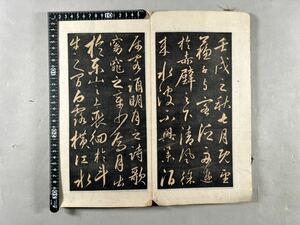 壬戌之秋七月既望
蘇子与客泛舟遊
於赤壁之下清風徐
来水波不興举酒
属客誦明月之詩歌
窈窕之章少焉月出
於東山之上徘徊於斗
牛之間白露横江水